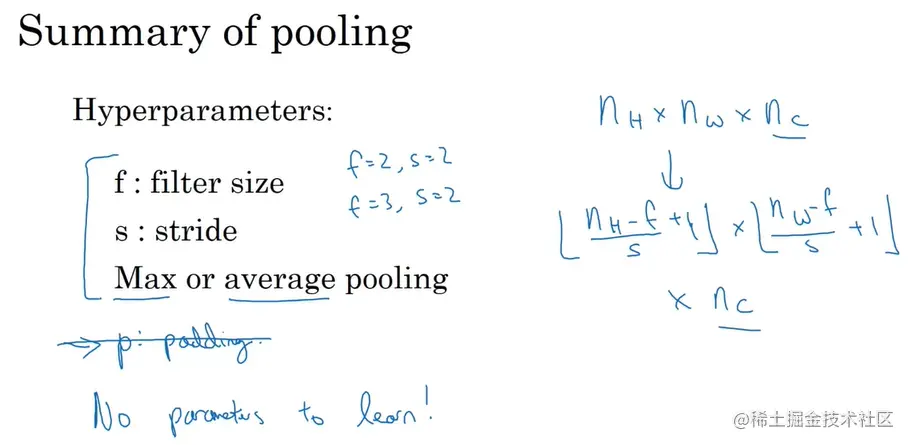 Summary of pooling
Hyperparameters:
f : filter size
f=2, s=2
f=3, s=2
s : stride
Max or average pooling
→ p: padding.
No parameters to learn!
n_H × n_W × n_C
↓
⌊(n_H−f)/s +1⌋ × ⌊(n_W−f)/s +1⌋
× n_C
@稀土掘金技术社区